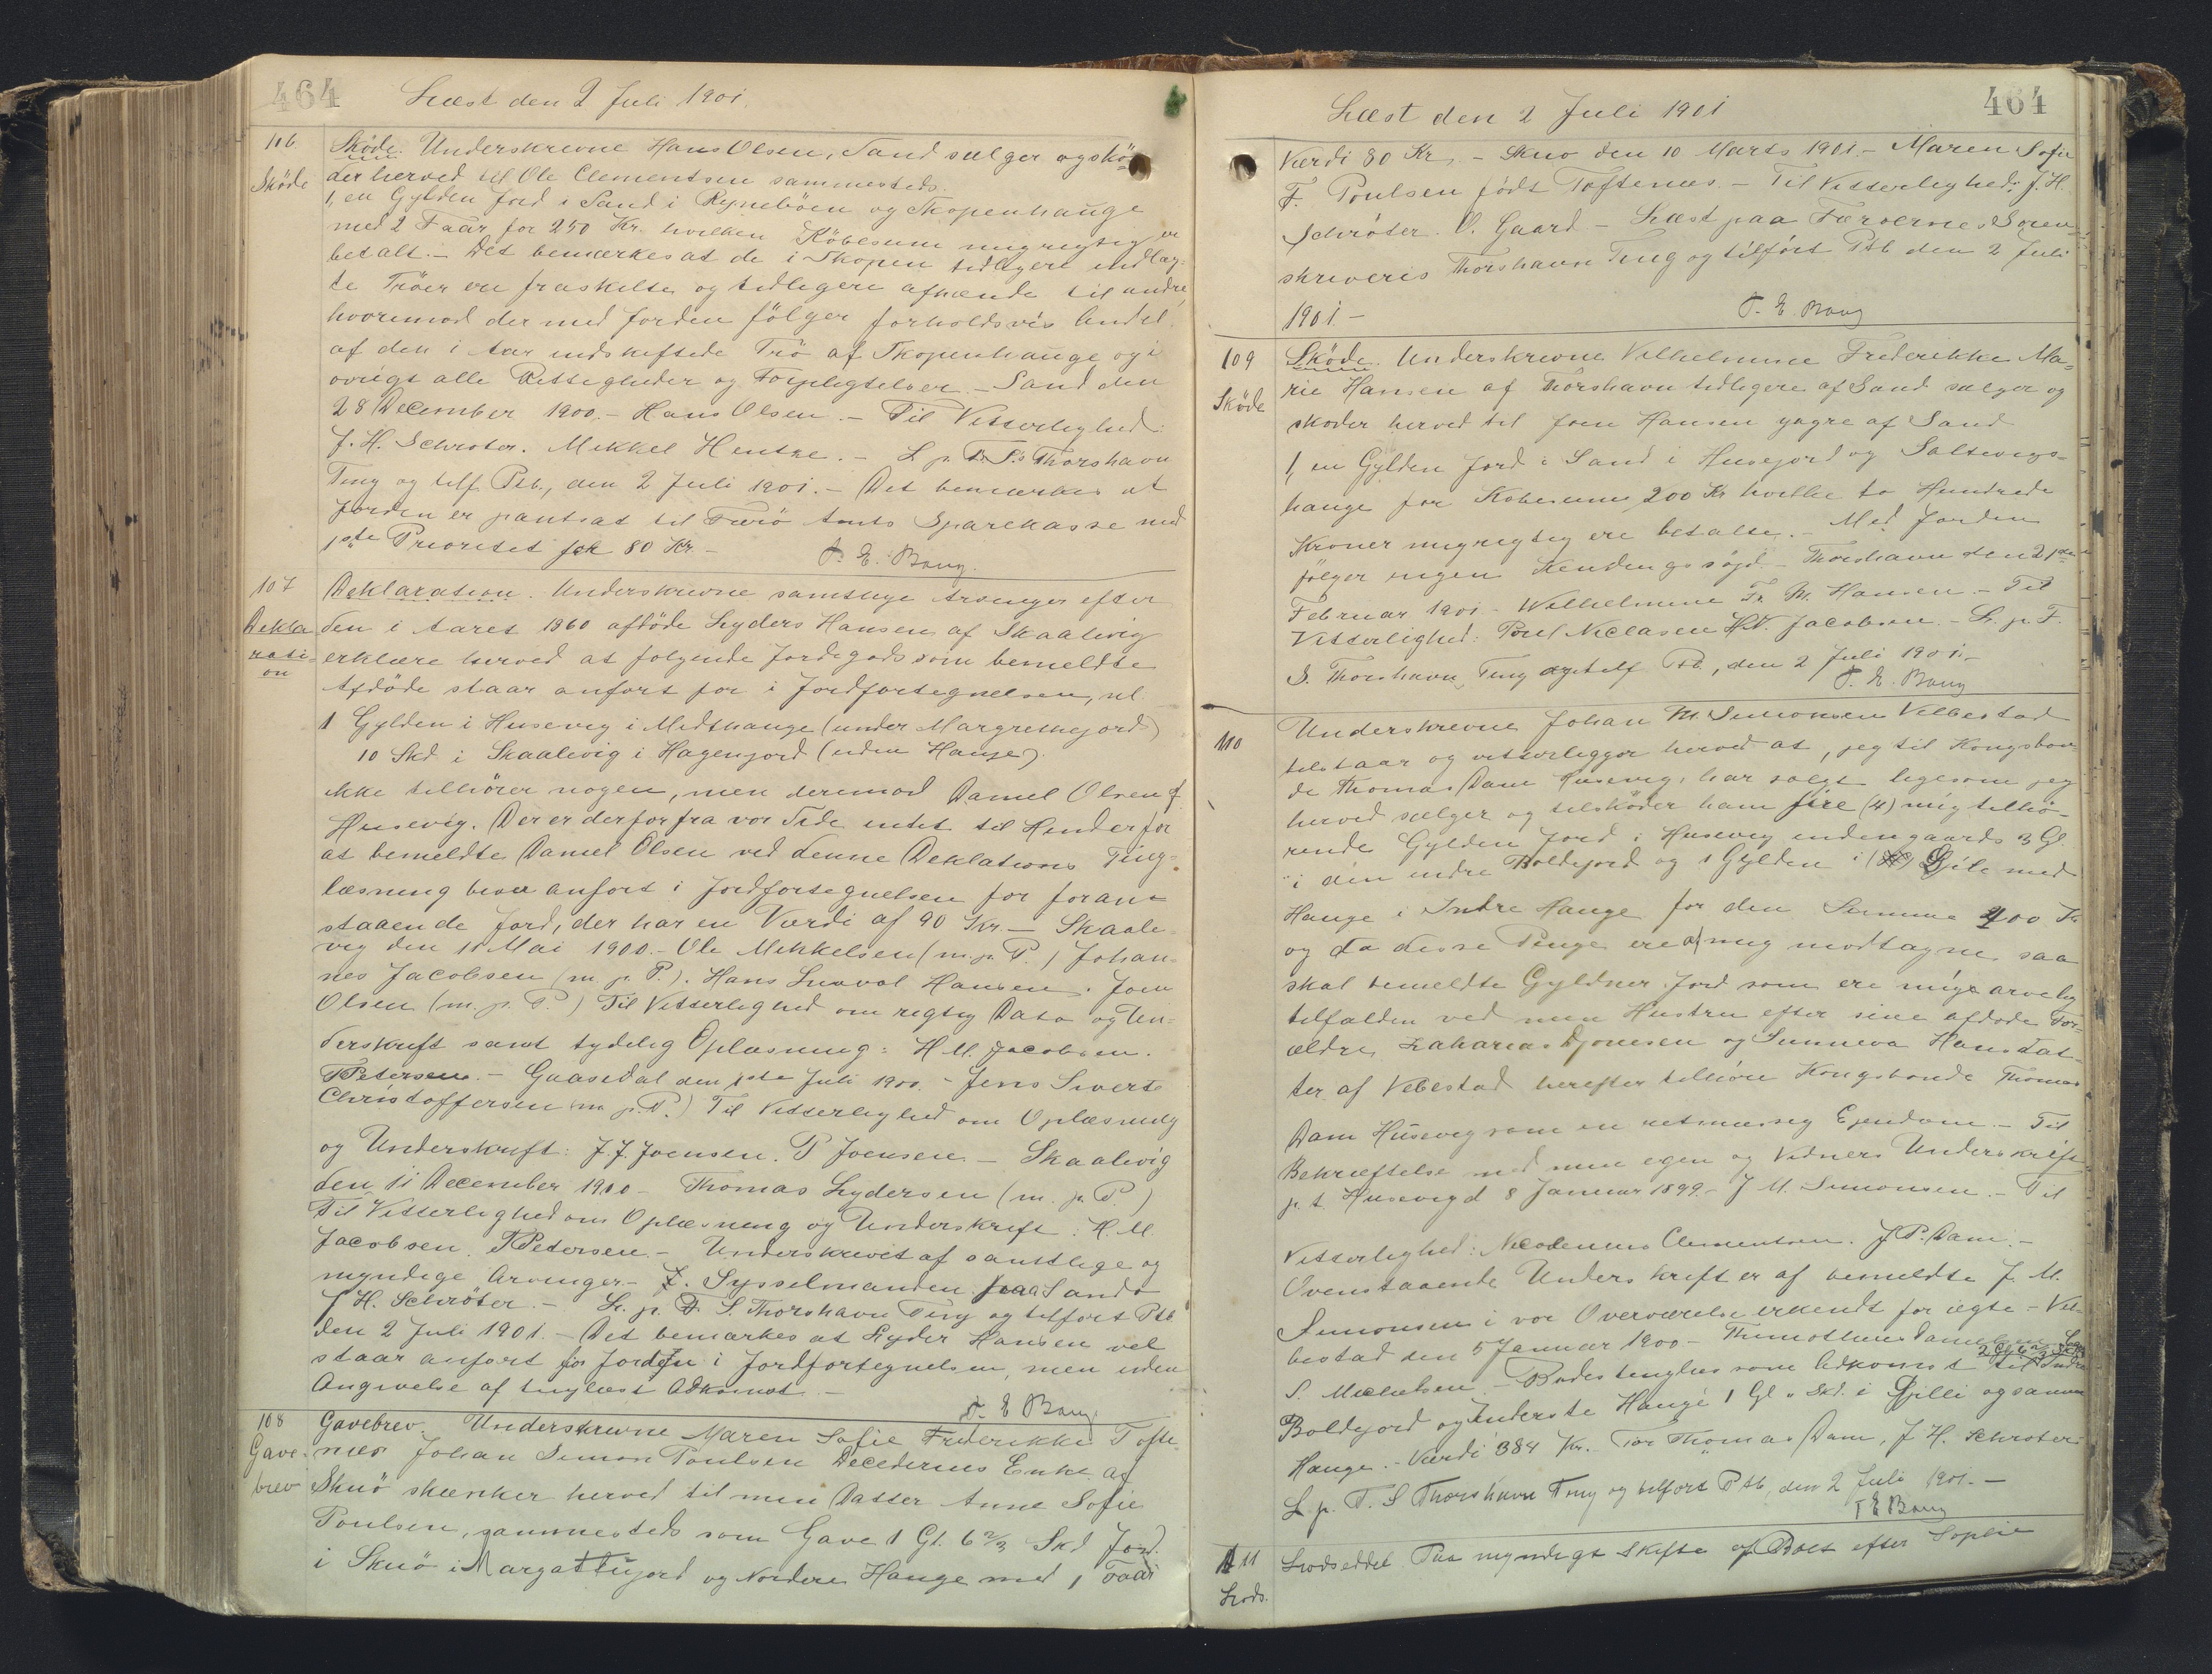 464
Læst den 2 Juli 1901.
106
Sköde
Sköde. Underskrevne Hans Olsen, Sand sælger og skö=
der herved til Ole Clementsen sammesteds.
1, en Gylden Jord i Sand i Ryneböen og Skopenhauge
med 2 Faar for 250 Kr. hvilken Köbesum mig rigtig er
betalt. – Det bemærkes at de i Skopen tidligere indlag=
te Tröer ere fraskilte og tidligere afhænde til andre,
hvorimod der med Jorden fölger forholdsvis Andel
af den i Aar indskiftede Trö af Skopenhauge og i
övrigt alle Rettigheder og Forpligtelser. – Sand den
28 December 1900. – Hans Olsen. – Til Vitterlighed:
J. H. Schröter. Mikkel Hentze. – L. p. F. S. Thorshavn
Ting og tilf. Ptb., den 2 Juli 1901. – Det bemærkes at
Jorden er pantsat til Færö Amts Sparekasse med
1ste Prioritet for 80 Kr. –
T. E. Bang.
107
Dekla
rati=
on
Deklaration. Underskrevne samtlige Arvinger efter
den i Aaret 1860 afdöde Lyders Hansen af Skaalevig
erklære herved at fölgende Jordegods som bemeldte
Afdöde staar anfört for i Jordfortegnelsen, nl.
1 Gylden i Husevig i Midthauge (under Margrethejord)
10 Skd. i Skaalevig i Hagenjord (uden Hauge).
ikke tilhörer nogen, men derimod Daniel Olsen af
Husevig. Der er derfor fra vor Side intet til Hinder for
at bemeldte Daniel Olsen ved denne Deklations Ting=
læsning bliver anfört i Jordfortegnelsen for foran=
staaende Jord, der har en Værdi af 90 Kr. – Skaale=
vig den 11 Mai 1900. – Ole Mikkelsen (m. p. P.) Johan=
nes Jacobsen (m. p. P.). Hans Hansen. Joen
Olsen (m. p. P.) Til Vitterlighed om rigtig Dato og Un=
derskrift samt tydelig Oplæsning: H. M. Jacobsen.
T Petersen. – Gaasedal den 1ste Juli 1900. – Jens Sivert
Christoffersen (m. p. P.) Til Vitterlighed om Oplæsning
og Underskrift: J. J. Joensen. P Joensen. – Skaalevig
den 11 December 1900 – Thomas Lydersen (m. p. P.)
Til Vitterlighed om Oplæsning og Underskrift: H. M.
Jacobsen. T Petersen. – Underskrevet af samtlige og
myndige Arvinger. – Sysselmanden paa Sandö
J H. Schröter. – L. p. F. S. Thorshavn Ting og tilfört Ptb.
den 2 Juli 1901. – Det bemærkes at Lyder Hansen vel
staar anfört for Jorden i Jordfortegnelsen, men uden
Angivelse af tinglæst Adkomst. –
T. E Bang.
108
Gave=
brev
Gavebrev. Underskrevne Maren Sofie Frederikke Tofte=
næs Johan Simon Poulsen Decedenis Enke af
Skuö skænker herved til min Datter Anne Sofie
Poulsen, sammesteds som Gave 1 Gl. 6 2/3 Skd Jord
i Skuö i Margattujord og Nordere Hauge med 1 Faar
464
Læst den 2 Juli 1901
Værdi 80 Kr. – Skuö den 10 Marts 1901. – Maren Sofie
F. Poulsen födt Toftenæs. – Til Vitterlighed: J. H.
Schröter. O. Gaard. – Læst paa Færöernes Soren=
skriveris Thorshavn Ting og tilfört Ptb den 2 Juli
1901. –
T. E. Bang
109
Sköde
Sköde. Underskrevne Vilhelmine Frederikke Ma=
rie Hansen af Thorshavn tidligere af Sand sælger og
sköder herved til Joen Hansen yngre af Sand
1, en Gylden Jord i Sand i Husejord og Saltvigs=
hauge for Köbesum 200 Kr hvilke to Hundrede
Kroner mig rigtig ere betalte. – Med Jorden
fölger ingen Hendingssöjd. – Thorshavn den 21de
Februar 1901 – Wilhelmine Fr. M. Hansen. – Til
Vitterlighed: Poul Niclasen H. N. Jacobsen. – L. p. F.
S. Thorshavn Ting og tilf Ptb., den 2 Juli 1901. –
T. E. Bang
110
Underskrevne Johan M. Simonsen Velbestad
tilstaar og vitterliggör herved at, jeg til Kongsbon=
de Thomas Dam Husevig, har solgt ligesom jeg
herved sælger og tilsköder ham fire (4) mig tilhö=
rende Gylden Jord i Husevig indengaards 3 Gl.
i den indre Boldejord og 1 Gylden i Gile med
Hauge i Indre Hauge for den Summa 400 Kr
og da disse Penge ere af mig modtagne, saa
skal bemeldte Gyldner Jord som ere mig arvelig
tilfalden ved min Hustru efter sine afdöde For=
ældre, Zakarias Djonesen og Sunneva Hansdat=
ter af Vebestad herefter tilhöre Kongsbonde Thomas
Dam Husevig som en retmæssig Ejendom. – Til
Bekræftelse med min egen og Vidners Underskrift
p. t. Husevig d 8 Januar 1899. – J M. Simonsen. – Til
Vitterlighed: Nicodemus Clementsen. J P. Dam. –
Ovenstaaende Underskrift er af bemeldte J. M.
Simonsen i vor Overværelse erkendt for ægte – Vel=
bestad den 5 Januar 1900 –
S. Michelsen. – Bödestenghus som Adkomst til Indre
Boldejord og Inderste Hauge 1 Gl. " Skd. i Gjilli og samme
Hauge. – Værdi 384 Kr. – For Thomas Dam, J H. Schröter.
L. p. F. S Thorshavn Ting og tilfört Ptb, den 2 Juli 1901. –
T E Bang
111
Lods.
Lodseddel. Paa myndigt Skifte af Boet efter Sophie